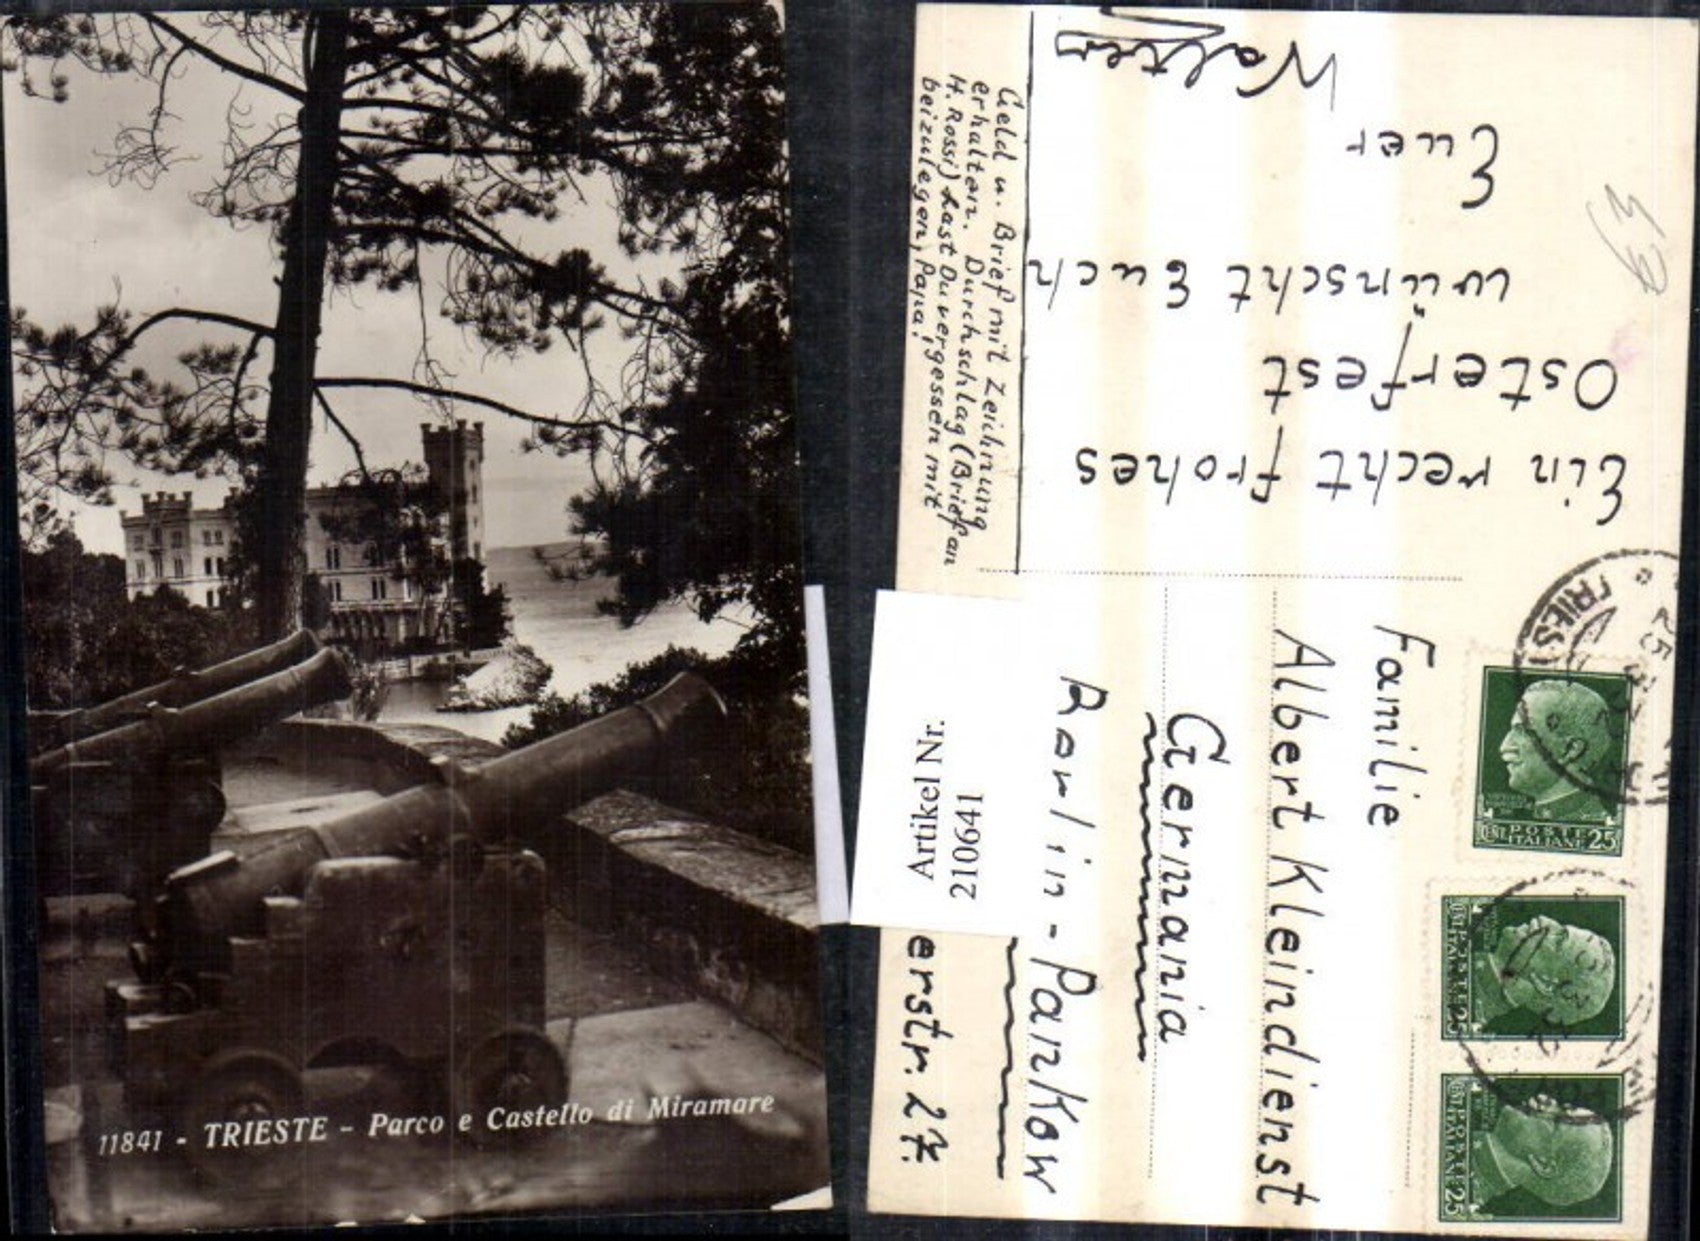 11841 - TRIESTE - Parco e Castello di Miramare
Ein recht frohes
Osterfest
wünscht Euch
Euer
Walter
Geld u. Brief mit Zeichnung
erhalten. Durchschlag (Brief an
H. Rossi) hast Du vergessen mit
beizulegen, Papa!
Familie
Albert Kleindienst
Germania
Berlin-Pankow
erstr. 27.
Artikel Nr.
210641
TRIES
POSTE
ITALIANE 25
POSTE
ITALIANE 25
POSTE
ITALIANE 25